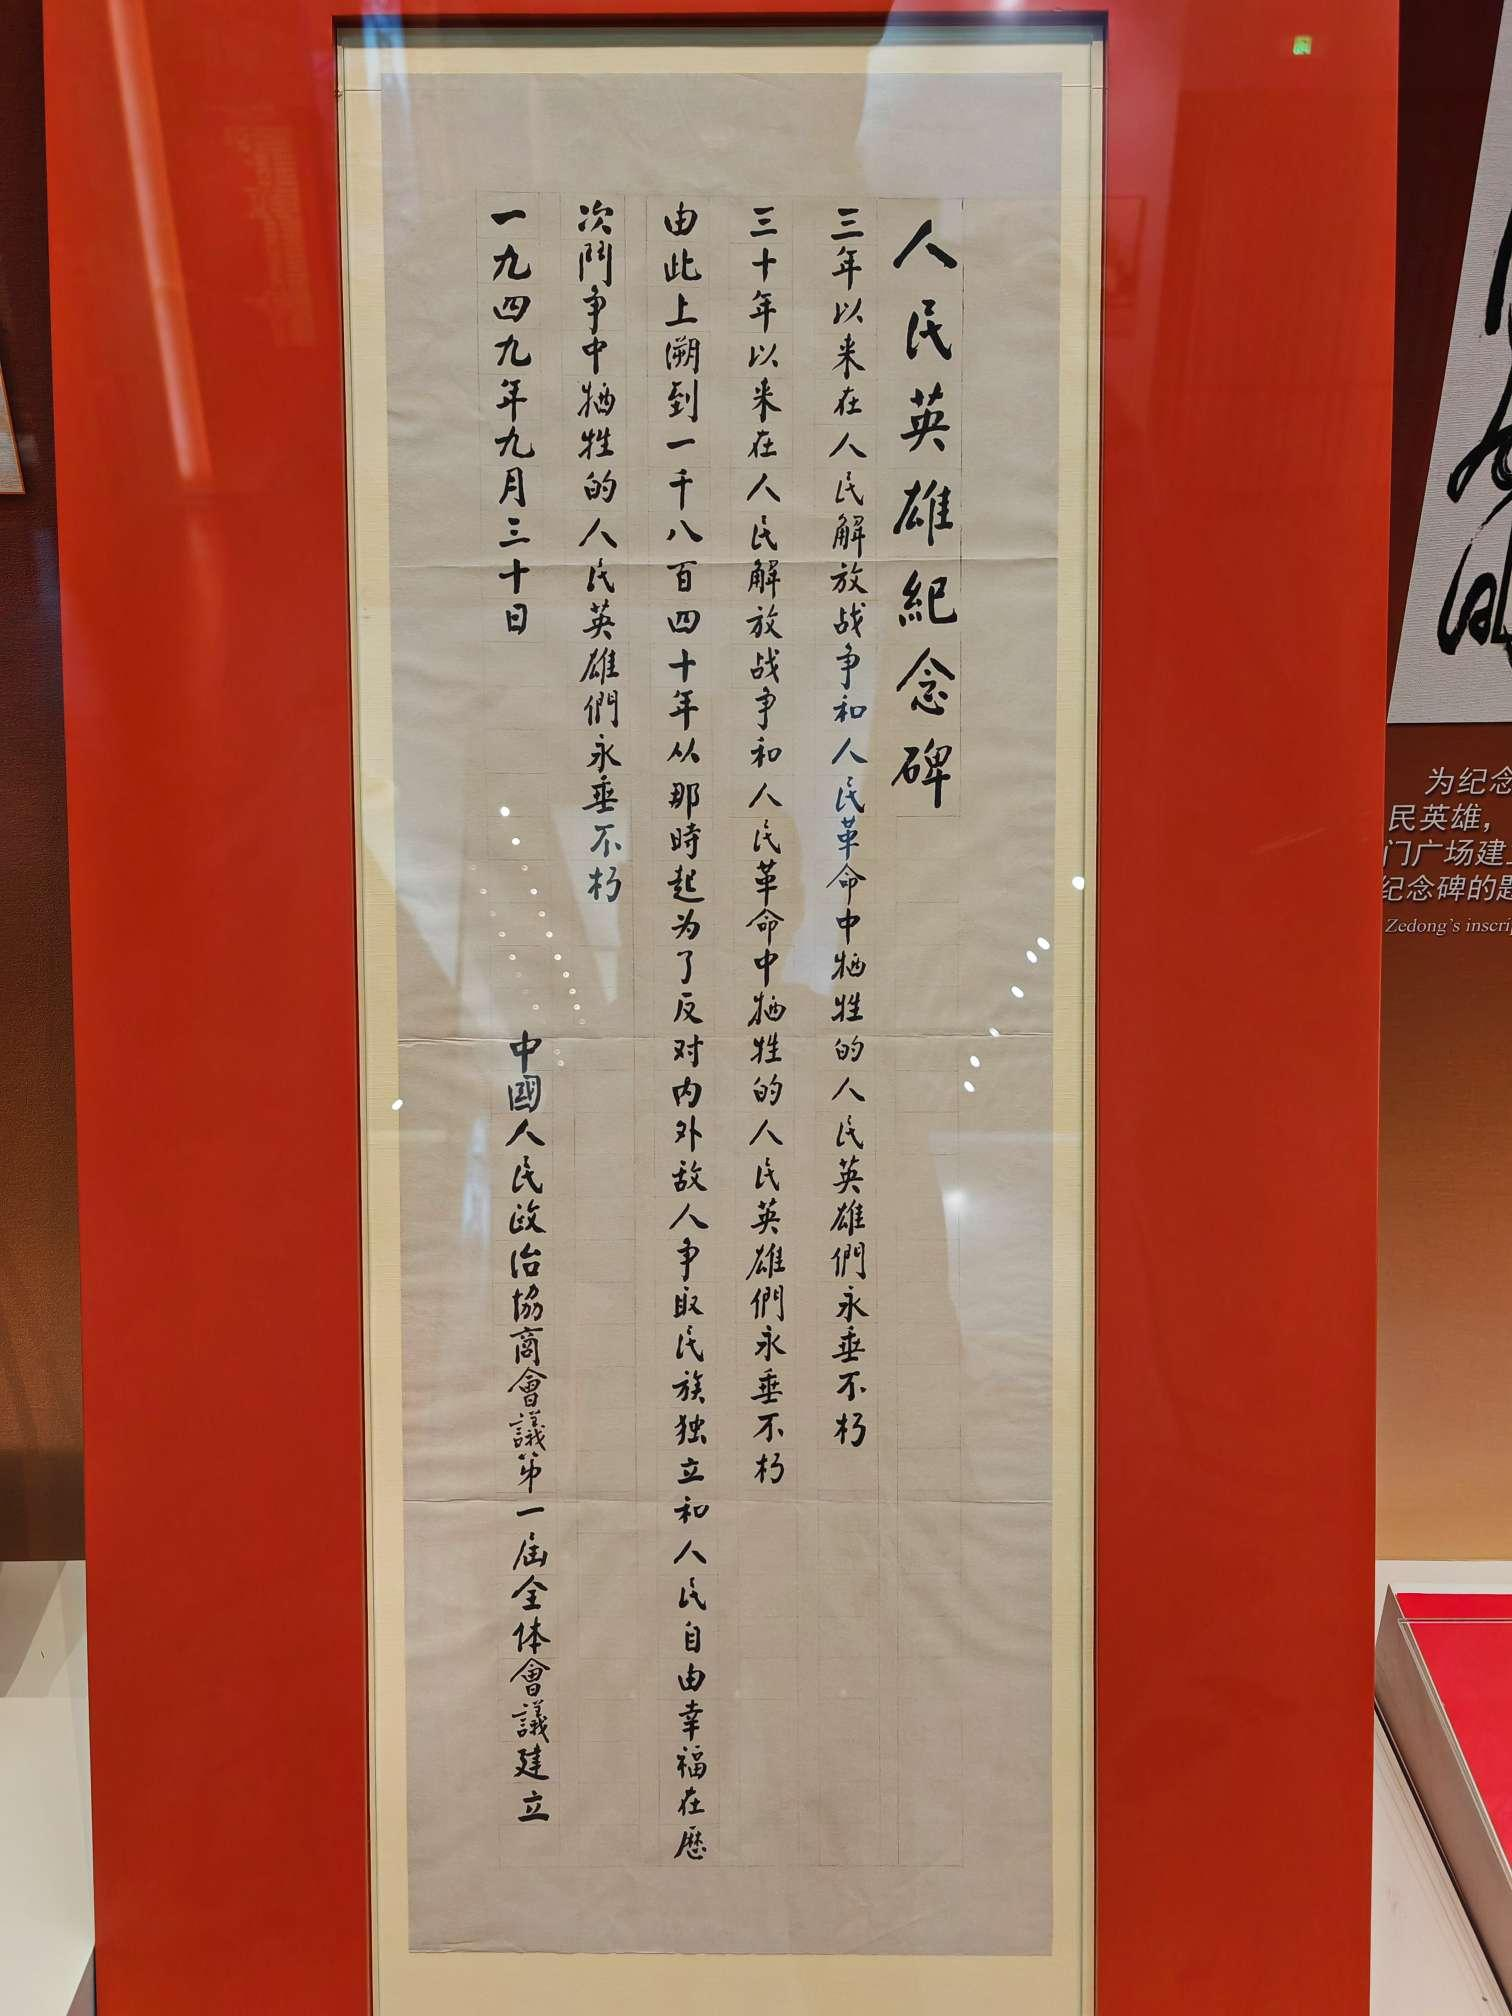 人民英雄紀念碑
三年以来在人民解放战争和人民革命中牺牲的人民英雄們永垂不朽
三十年以来在人民解放战争和人民革命中牺牲的人民英雄們永垂不朽
由此上溯到一千八百四十年从那時起为了反对内外敌人争取民族独立和人民自由幸福在歷
次鬥争中牺牲的人民英雄們永垂不朽
一九四九年九月三十日
中國人民政治協商會議第一届全体會議建立
为纪念
民英雄，
门广场建
纪念碑的题
Zedong's inscri